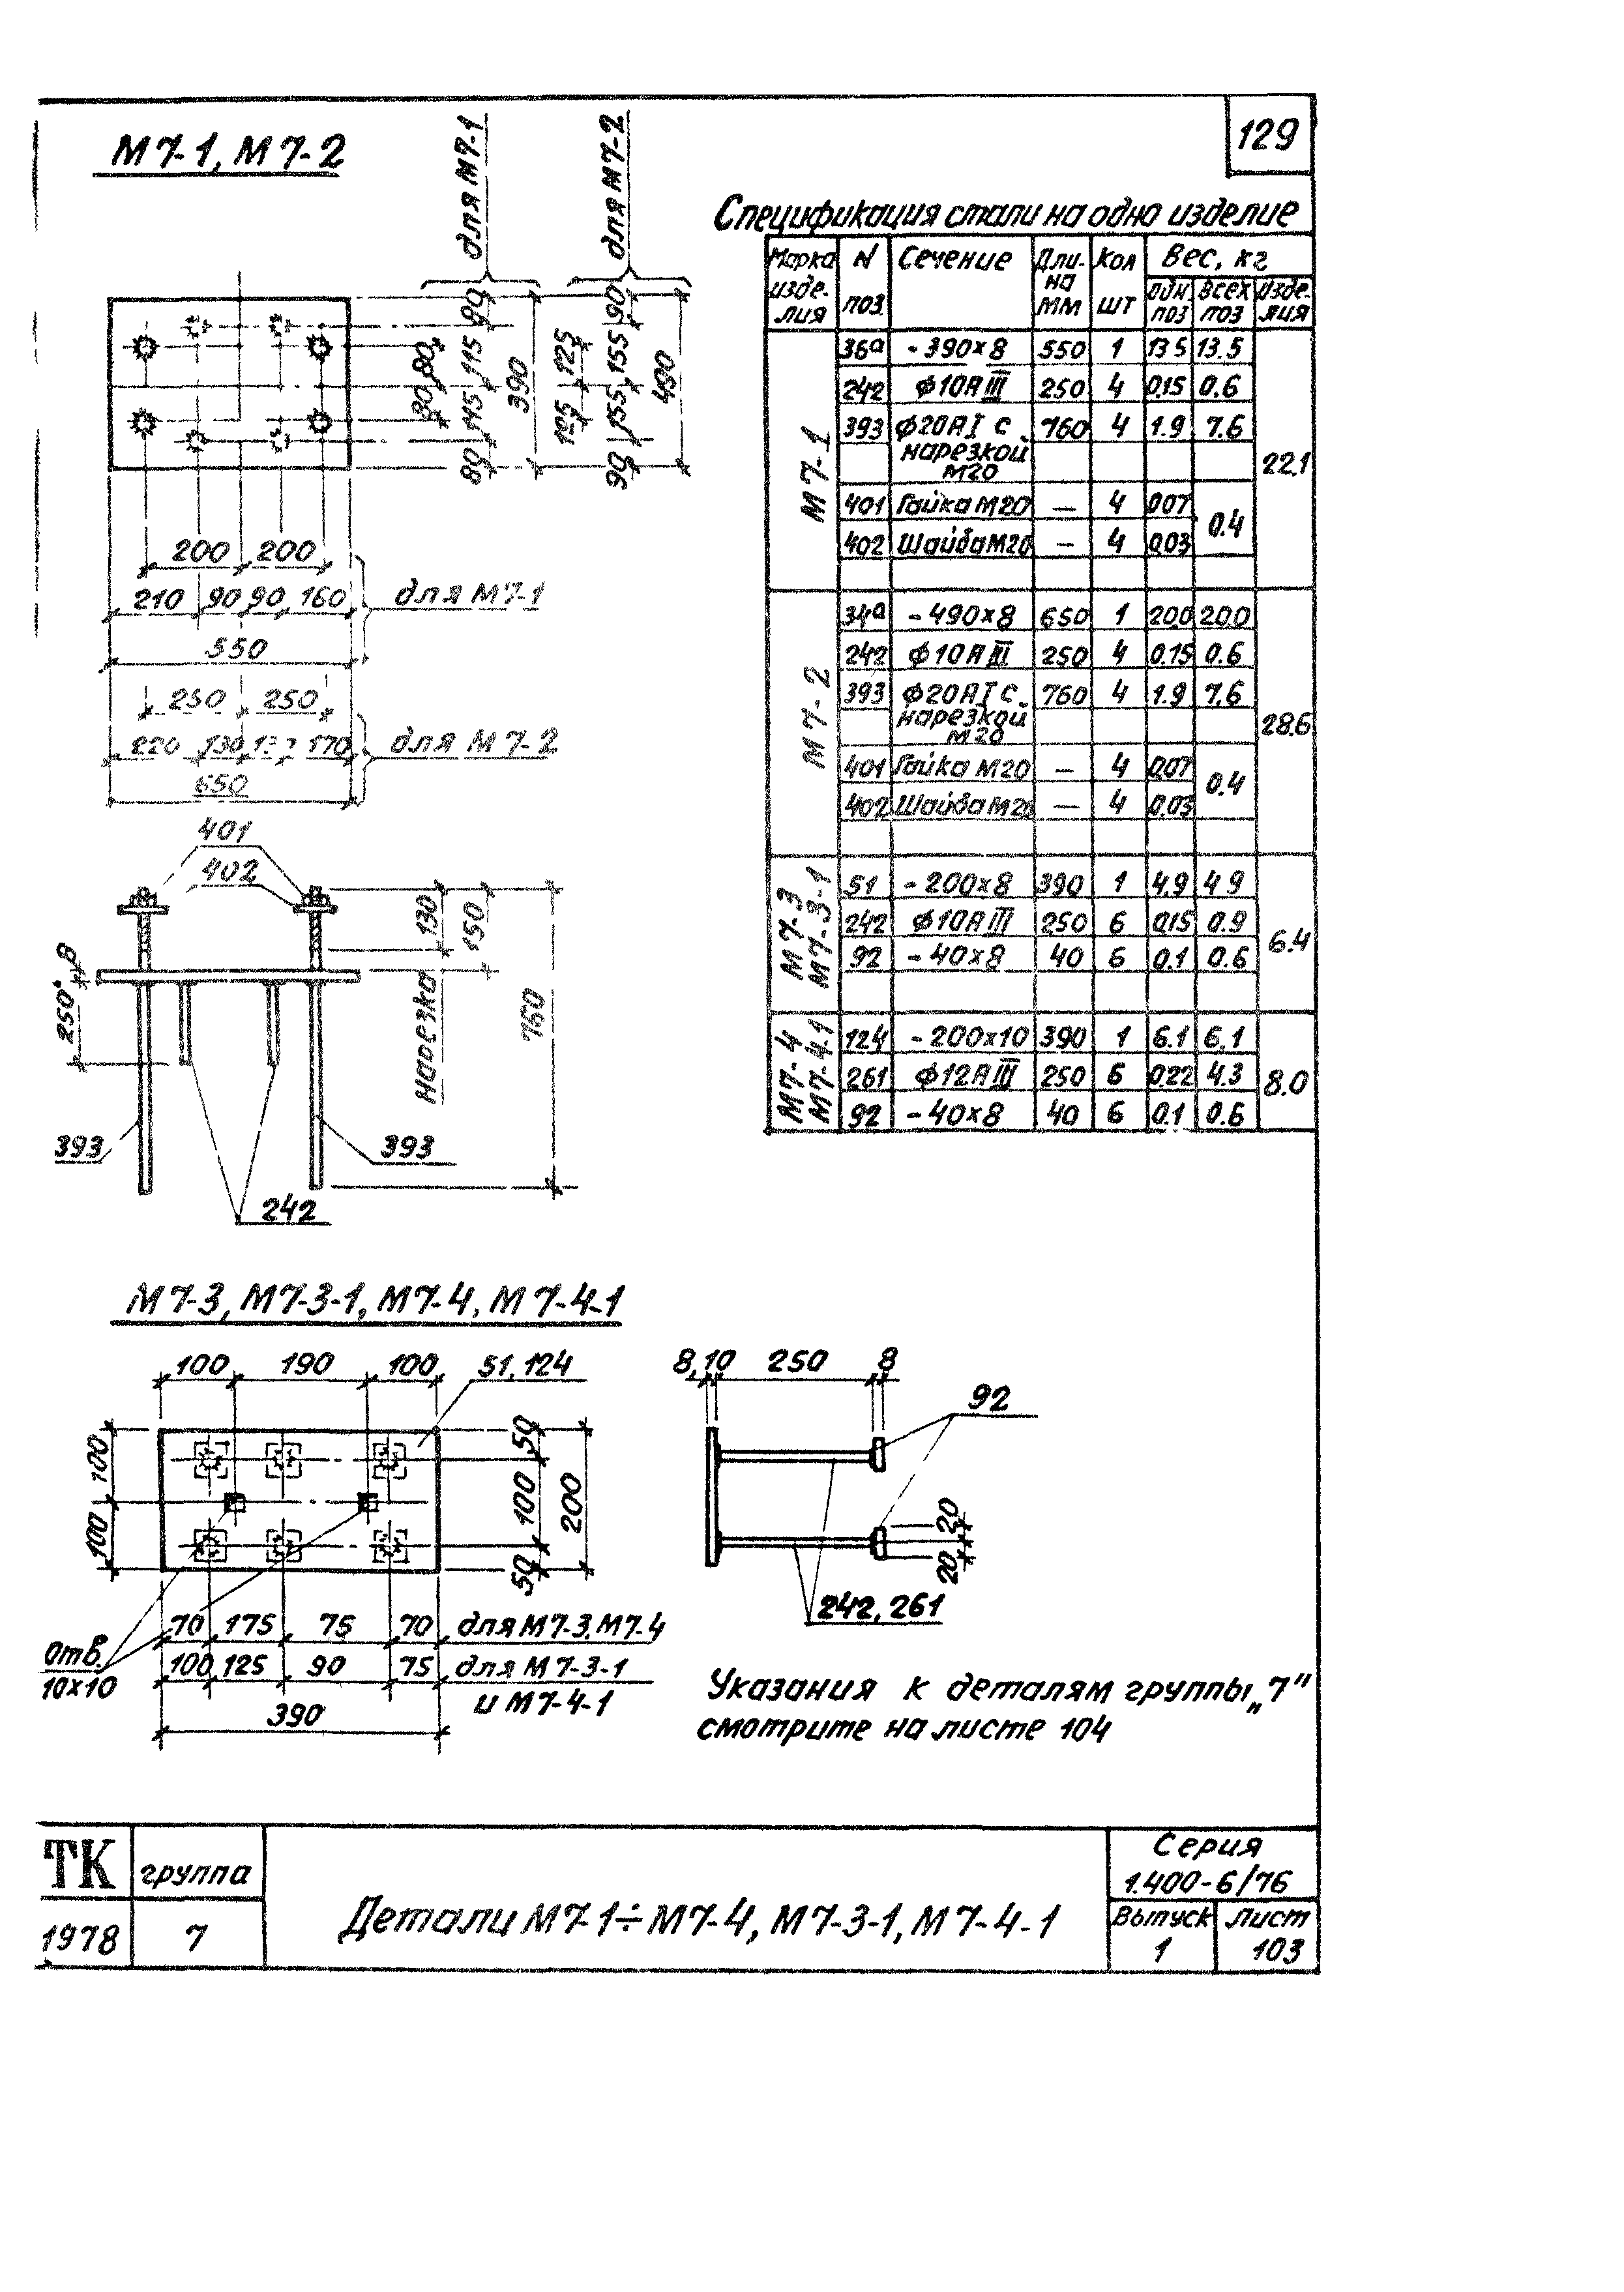 129
М7-1, М7-2
для М7-1
для М7-2
80
115
115
80
80
80
390
125
125
90
155
155
90
490
200 200
210 90 90 160
для М7-1
550
250 250
220 130 170
для М7-2
650
401
402
8
250
130
150
Нарезка
760
393
393
242
Спецификация стали на одно изделие
Марка изделия N поз. Сечение Длина мм Кол шт Вес, кг
одн поз всех поз изделия
М7-1
36а -390×8 550 1 13.5 13.5
242 ф10АIII 250 4 0.15 0.6
393 ф20АI с нарезкой М20 760 4 1.9 7.6
22.1
401 Гайка М20 — 4 0.07
0.4
402 Шайба М20 — 4 0.03
М7-2
34а -490×8 650 1 20.0 20.0
242 ф10АIII 250 4 0.15 0.6
393 ф20АI с нарезкой М20 760 4 1.9 7.6
28.6
401 Гайка М20 — 4 0.07
0.4
402 Шайба М20 — 4 0.03
М7-3
М7-3-1
51 -200×8 390 1 4.9 4.9
242 ф10АIII 250 6 0.15 0.9
6.4
92 -40×8 40 6 0.1 0.6
М7-4
М7-4-1
124 -200×10 390 1 6.1 6.1
261 ф12АIII 250 6 0.22 4.3
8.0
92 -40×8 40 6 0.1 0.6
М7-3, М7-3-1, М7-4, М7-4-1
100 190 100
51, 124
100
100
50
100
50
200
70 175 75 70 для М7-3, М7-4
100 125 90 75 для М7-3-1
и М7-4-1
390
Отв.
10×10
8,10 250 8
92
20
20
242, 261
Указания к деталям группы „7"
смотрите на листе 104
ТК
группа
1978
7
Детали М7-1÷М7-4, М7-3-1, М7-4-1
Серия
1.400-6/76
Выпуск
1
Лист
103